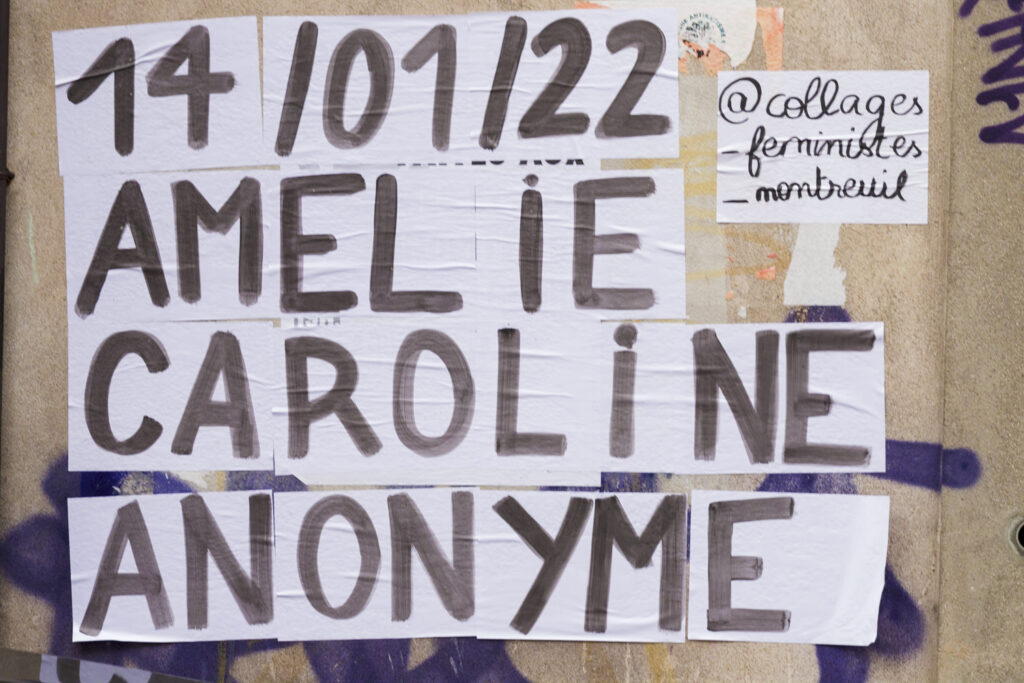 14/01/22
AMELiE
CAROLiNE
ANONYME
@collages
_feministes
_montreuil